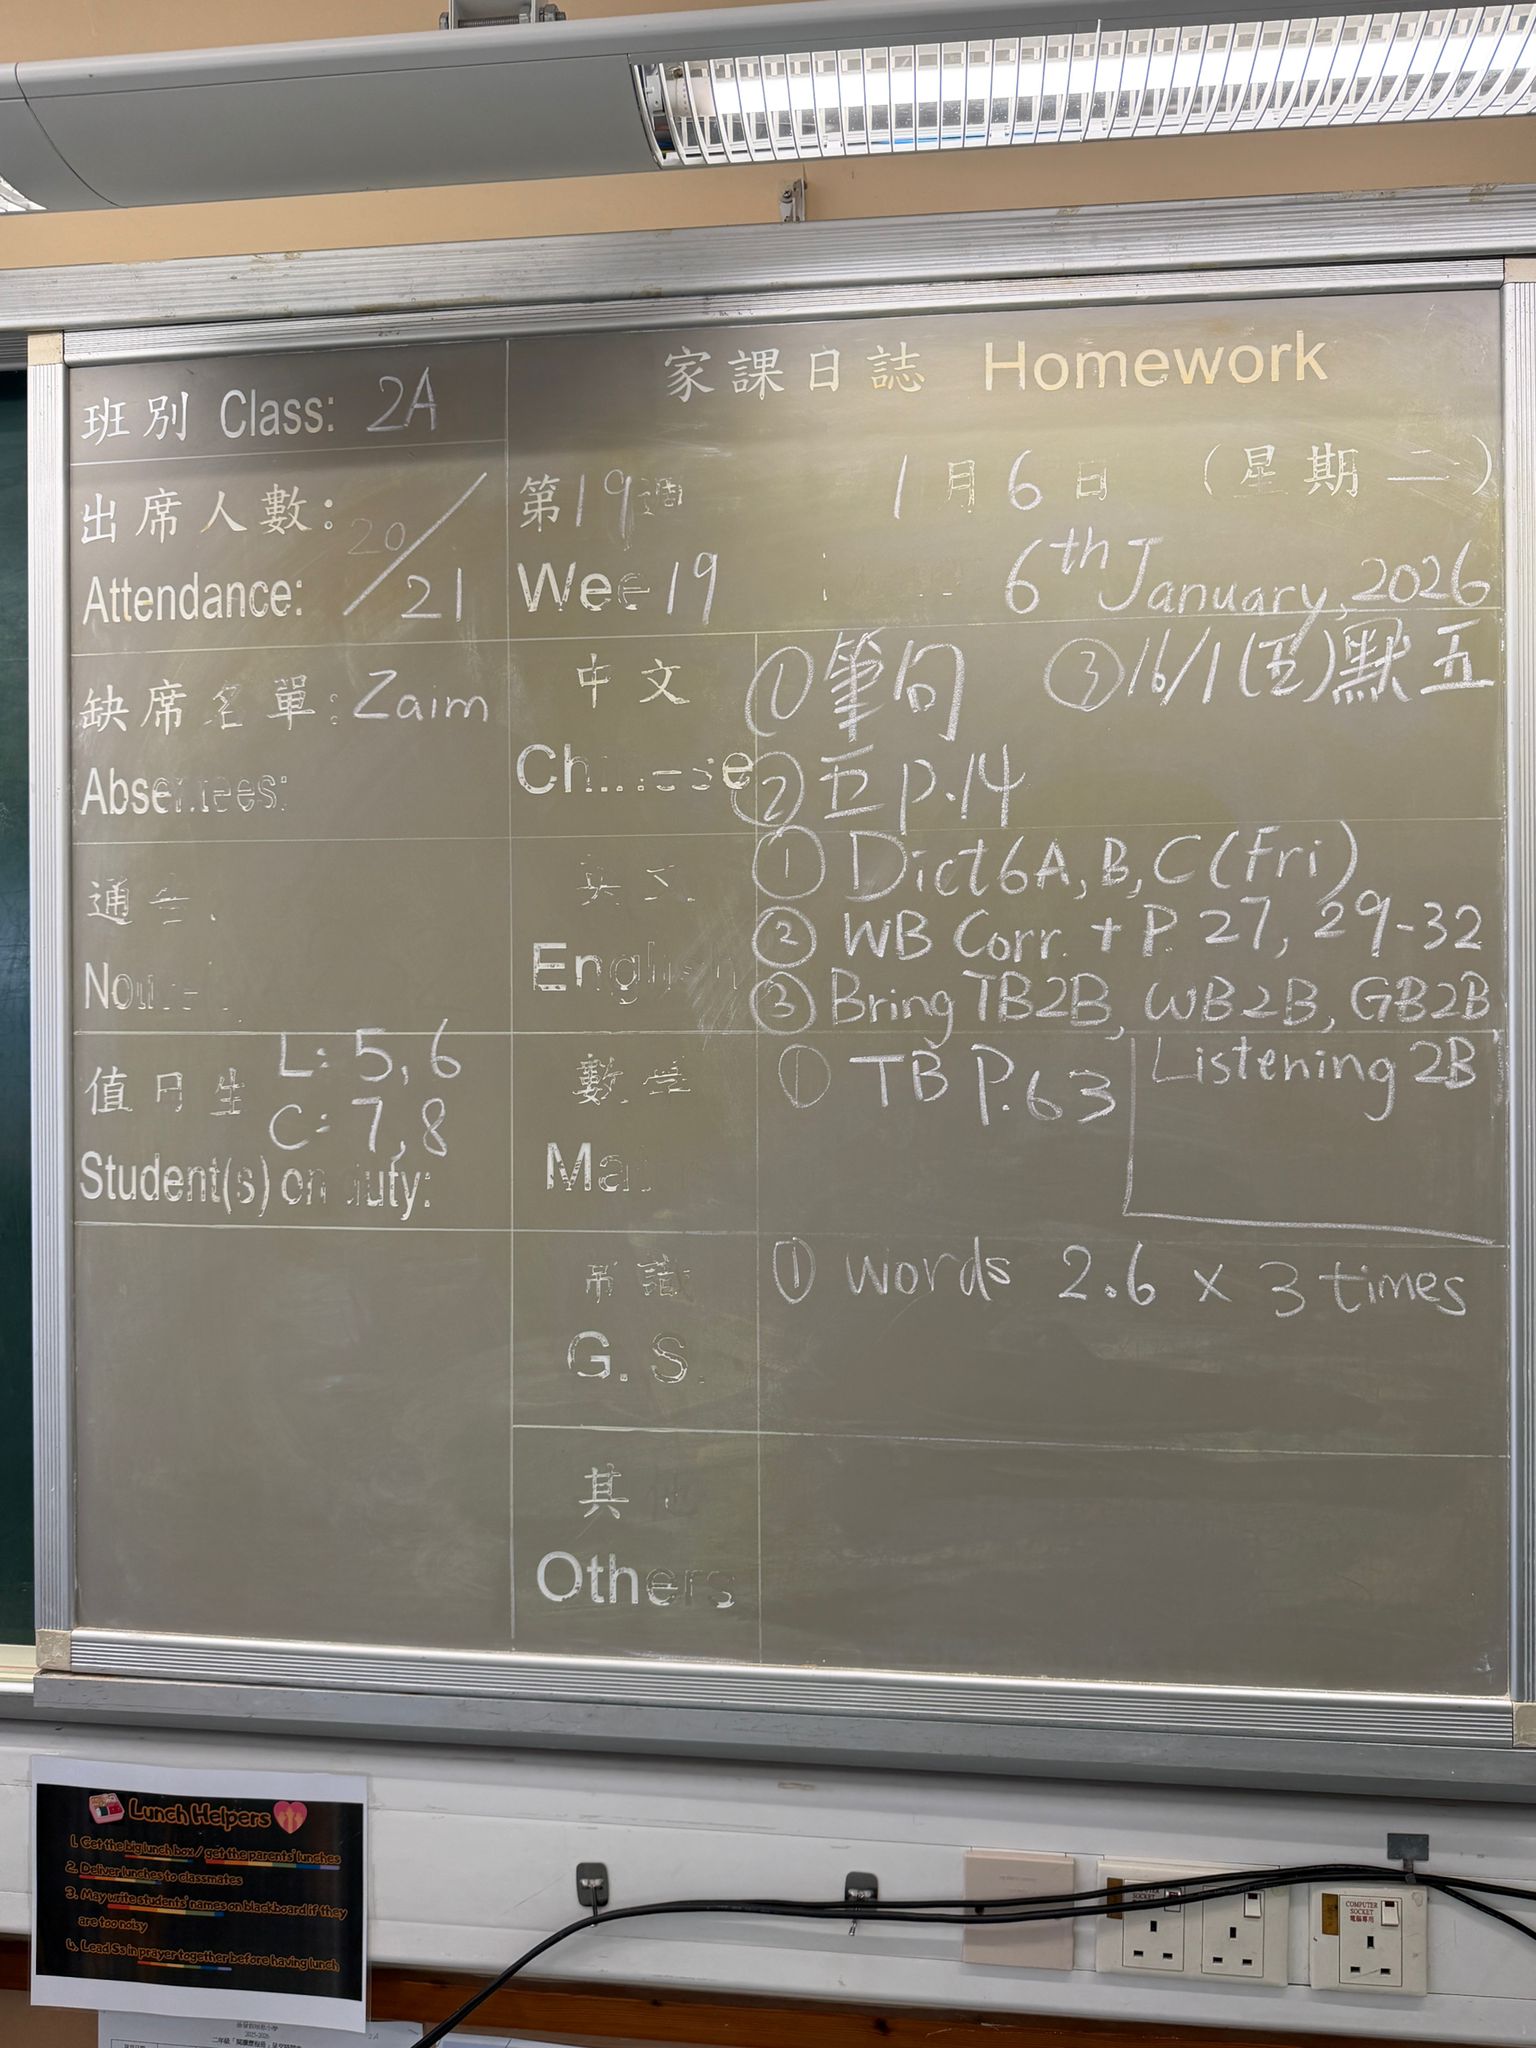 家課日誌 Homework
班別 Class: 2A
出席人數: 20/21
Attendance:
第19週 1月6日 (星期二)
Wee 19 6th January, 2026
缺席名單: Zaim
Absentees:
中文
Chinese
① 筆句 ③ 16/1 (五) 默五
② 五 p.14
通告
英文
English
① Dict 6A, B, C (Fri)
② WB Corr. + P. 27, 29-32
③ Bring TB2B, WB2B, GB2B,
Listening 2B
值日生 L: 5, 6
C: 7, 8
Student(s) on duty:
數學
Ma
① TB P.63
常識
G. S.
① Words 2.6 × 3 times
其他
Others
Lunch Helpers
1. Get the big lunch box / get the parents' lunches
2. Deliver lunches to classmates
3. May write students' names on blackboard if they
are too noisy
4. Lead Ss in prayer together before having lunch
COMPUTER
SOCKET
COMPUTER
SOCKET
電腦專用
2025-2026